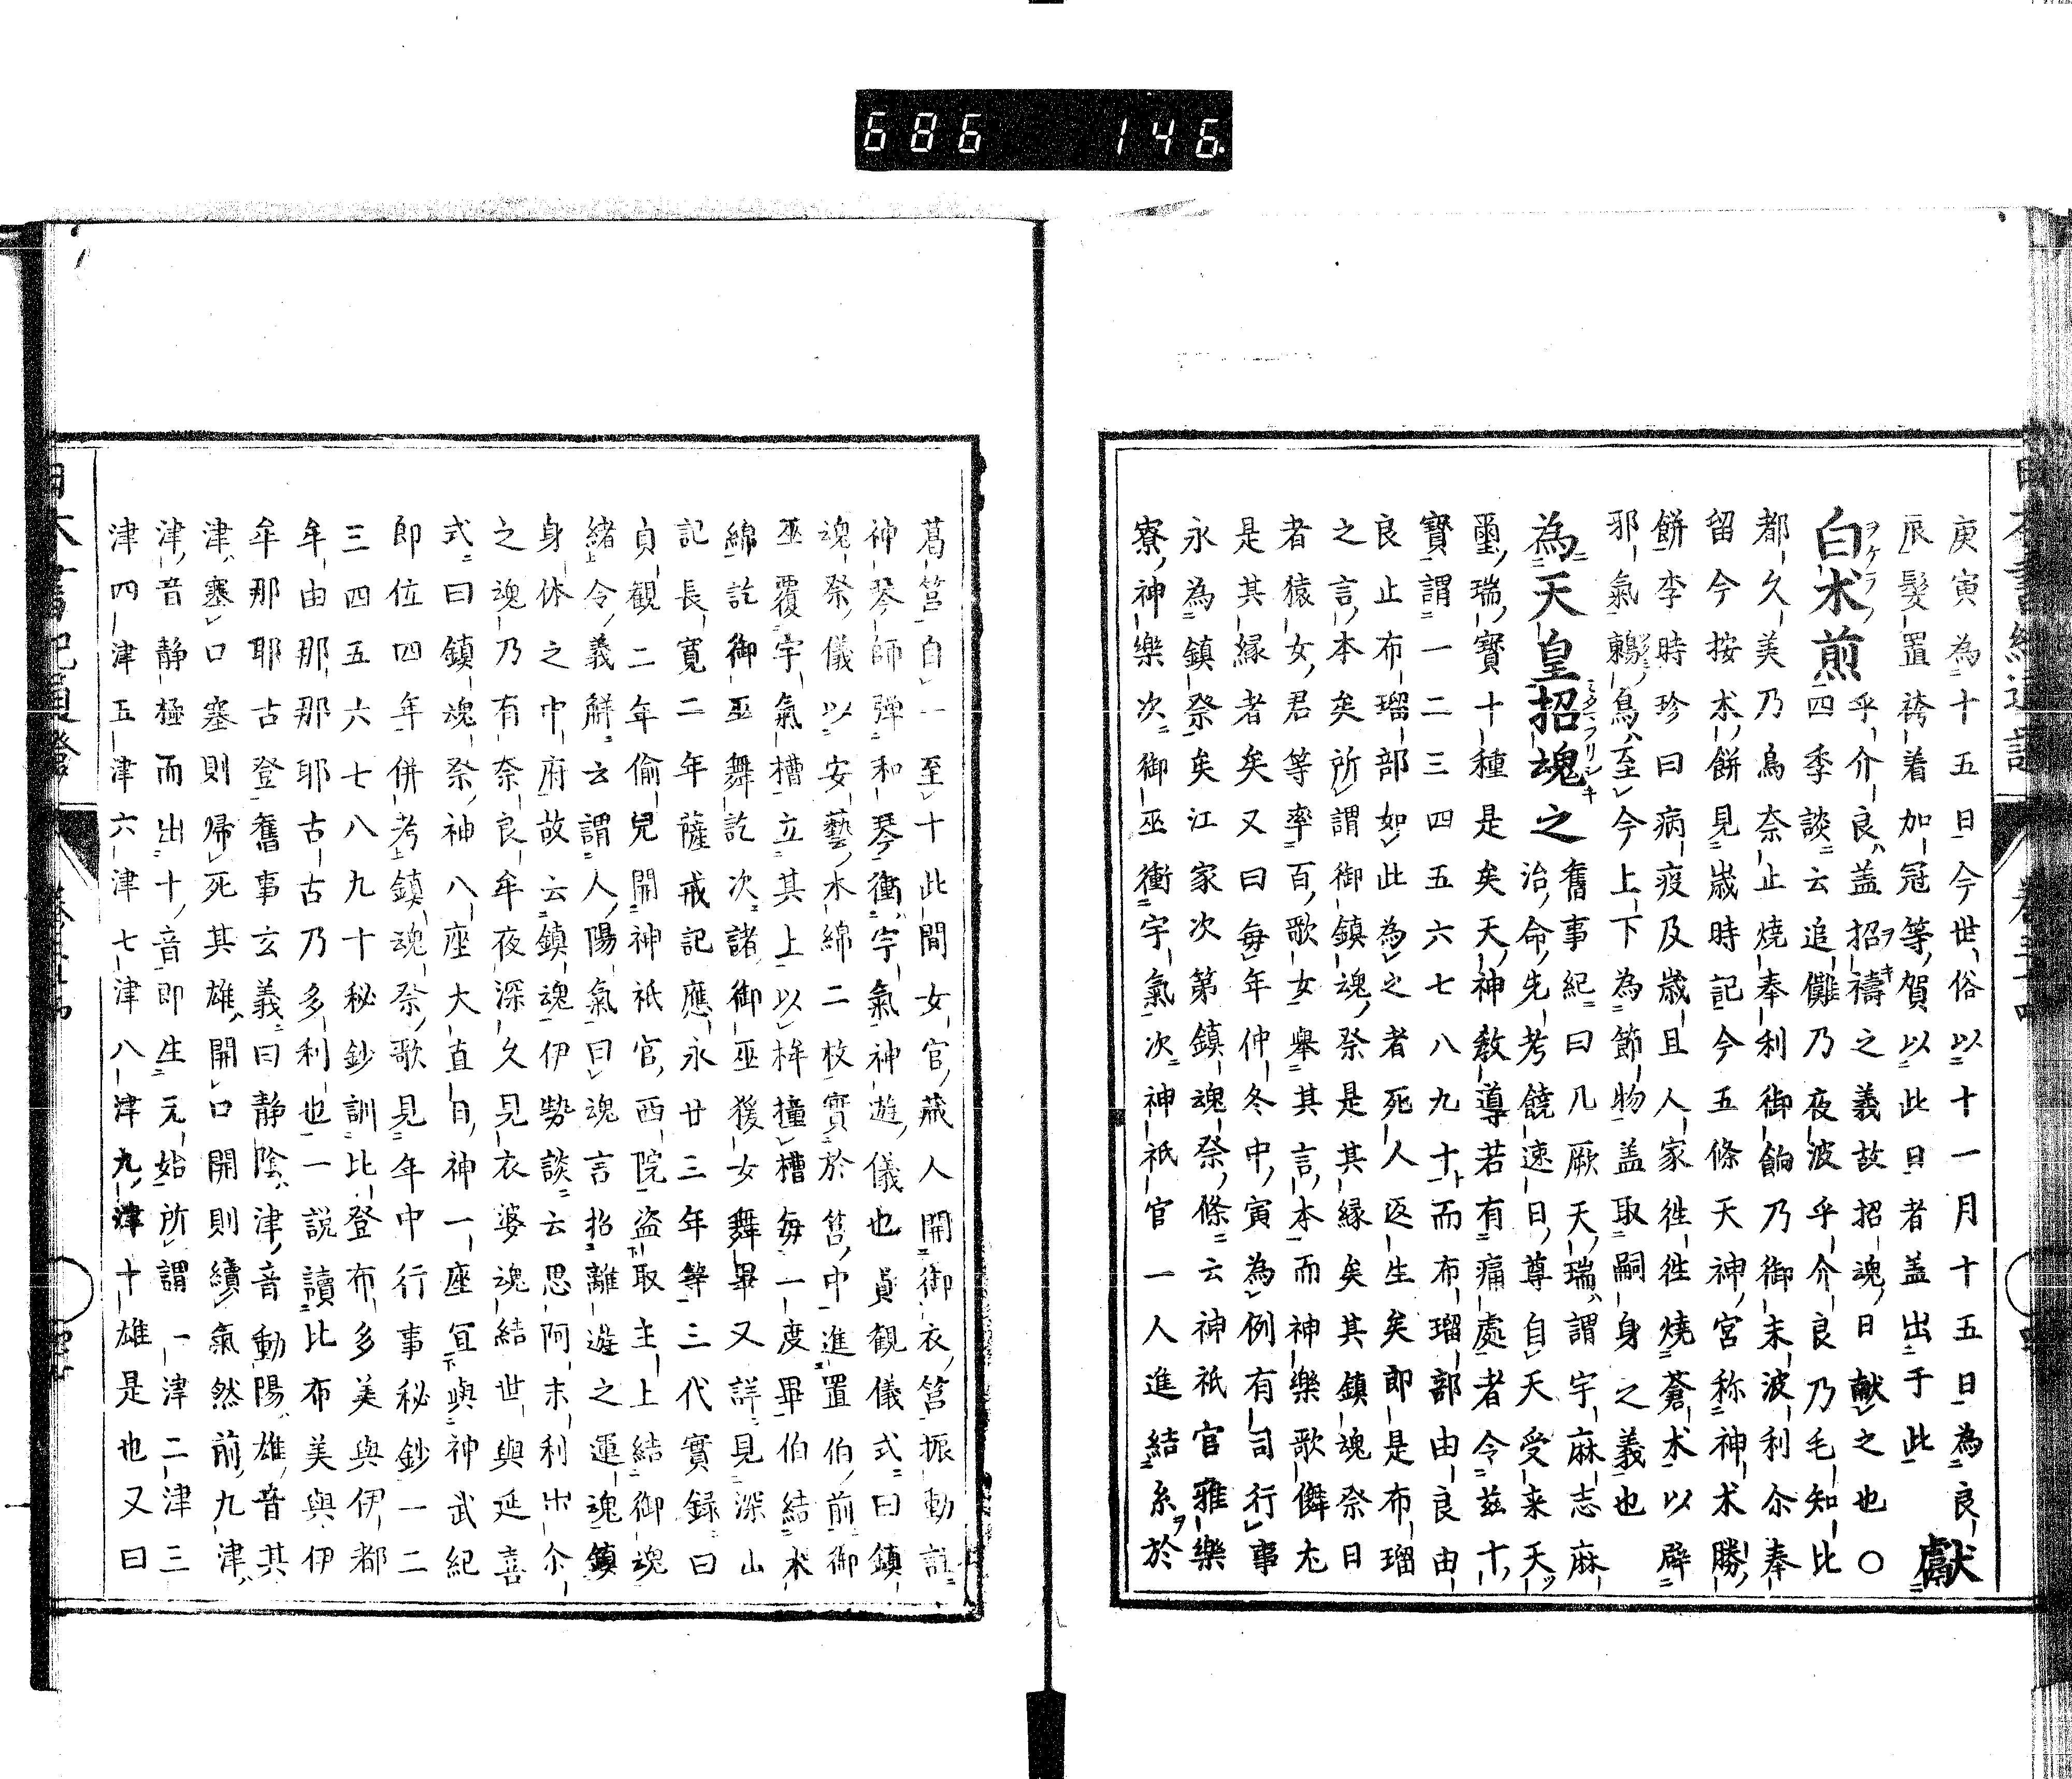 686 146
庚寅為十五日今世俗以十一月十五日為良獻
辰髮置袴着加冠等賀以此日者盖出于此
白朮煎乎介良盖招禱之義故招魂日献之也○
四季談云追儺乃夜波乎介良乃毛知比
ヲケラ
ヲキ
都久美乃鳥奈止焼奉利御飴乃御末波利尒奉
留今按朮餅見歳時記今五條天神宮称神朮勝
餅李時珍曰病疫及歳且人家徃徃焼蒼朮以辟
邪氣鶫鳥至今上下為節物盖取嗣身之義也
為天皇招魂之舊事紀曰几厥天瑞謂宇麻志麻
治命先考饒速日尊自天受来天
ミタマフリシキ
璽瑞寶十種是矣天神敎導若有痛處者令茲十
寶謂一二三四五六七八九十而布瑠部由良由
良止布瑠部如此為之者死人返生矣即是布瑠
之言本矣所謂御鎮魂祭是其縁矣其鎮魂祭日
者猿女君等率百歌女舉其言本而神樂歌儛尤
是其縁者矣又曰毎年仲冬中寅為例有司行事
永為鎮祭矣江家次第鎮魂祭條云神祇官雅樂
寮神樂次御巫衝宇氣次神祇官一人進結糸於
葛筥自一至十此間女官蔵人開御衣筥振動註
神琴師弾和琴衝宇氣神遊儀也貞観儀式曰鎮
魂祭儀以安藝木綿二枚實於筥中進置伯前御
巫覆宇氣槽立其上以桙撞槽毎一度畢伯結木
綿訖御巫舞訖次諸御巫猨女舞畢又詳見深山
記長寛二年薩戒記應永廿三年等三代實録曰
貞観二年偷兒開神祇官西院盗取主上結御魂
緒令義解云謂人陽氣曰魂言招離遊之運魂鎮
身休之中府故云鎮魂伊勢談云思阿末利出尒
之魂乃有奈良牟夜深久見衣婆魂結世與延喜
式曰鎮魂祭神八座大直日神一座冝與神武紀
即位四年併考鎮魂祭歌見年中行事秘鈔一二
三四五六七八九十秘鈔訓比登布多美與伊都
牟由那那耶古古乃多利也一説讀比布美與伊
牟那耶古登舊事玄義曰静陰津音動陽雄音其
津塞口塞則帰死其雄開口開則續氣然前九津
津音静極而出十音即生元始所謂一津二津三
津四津五津六津七津八津九津十雄是也又曰